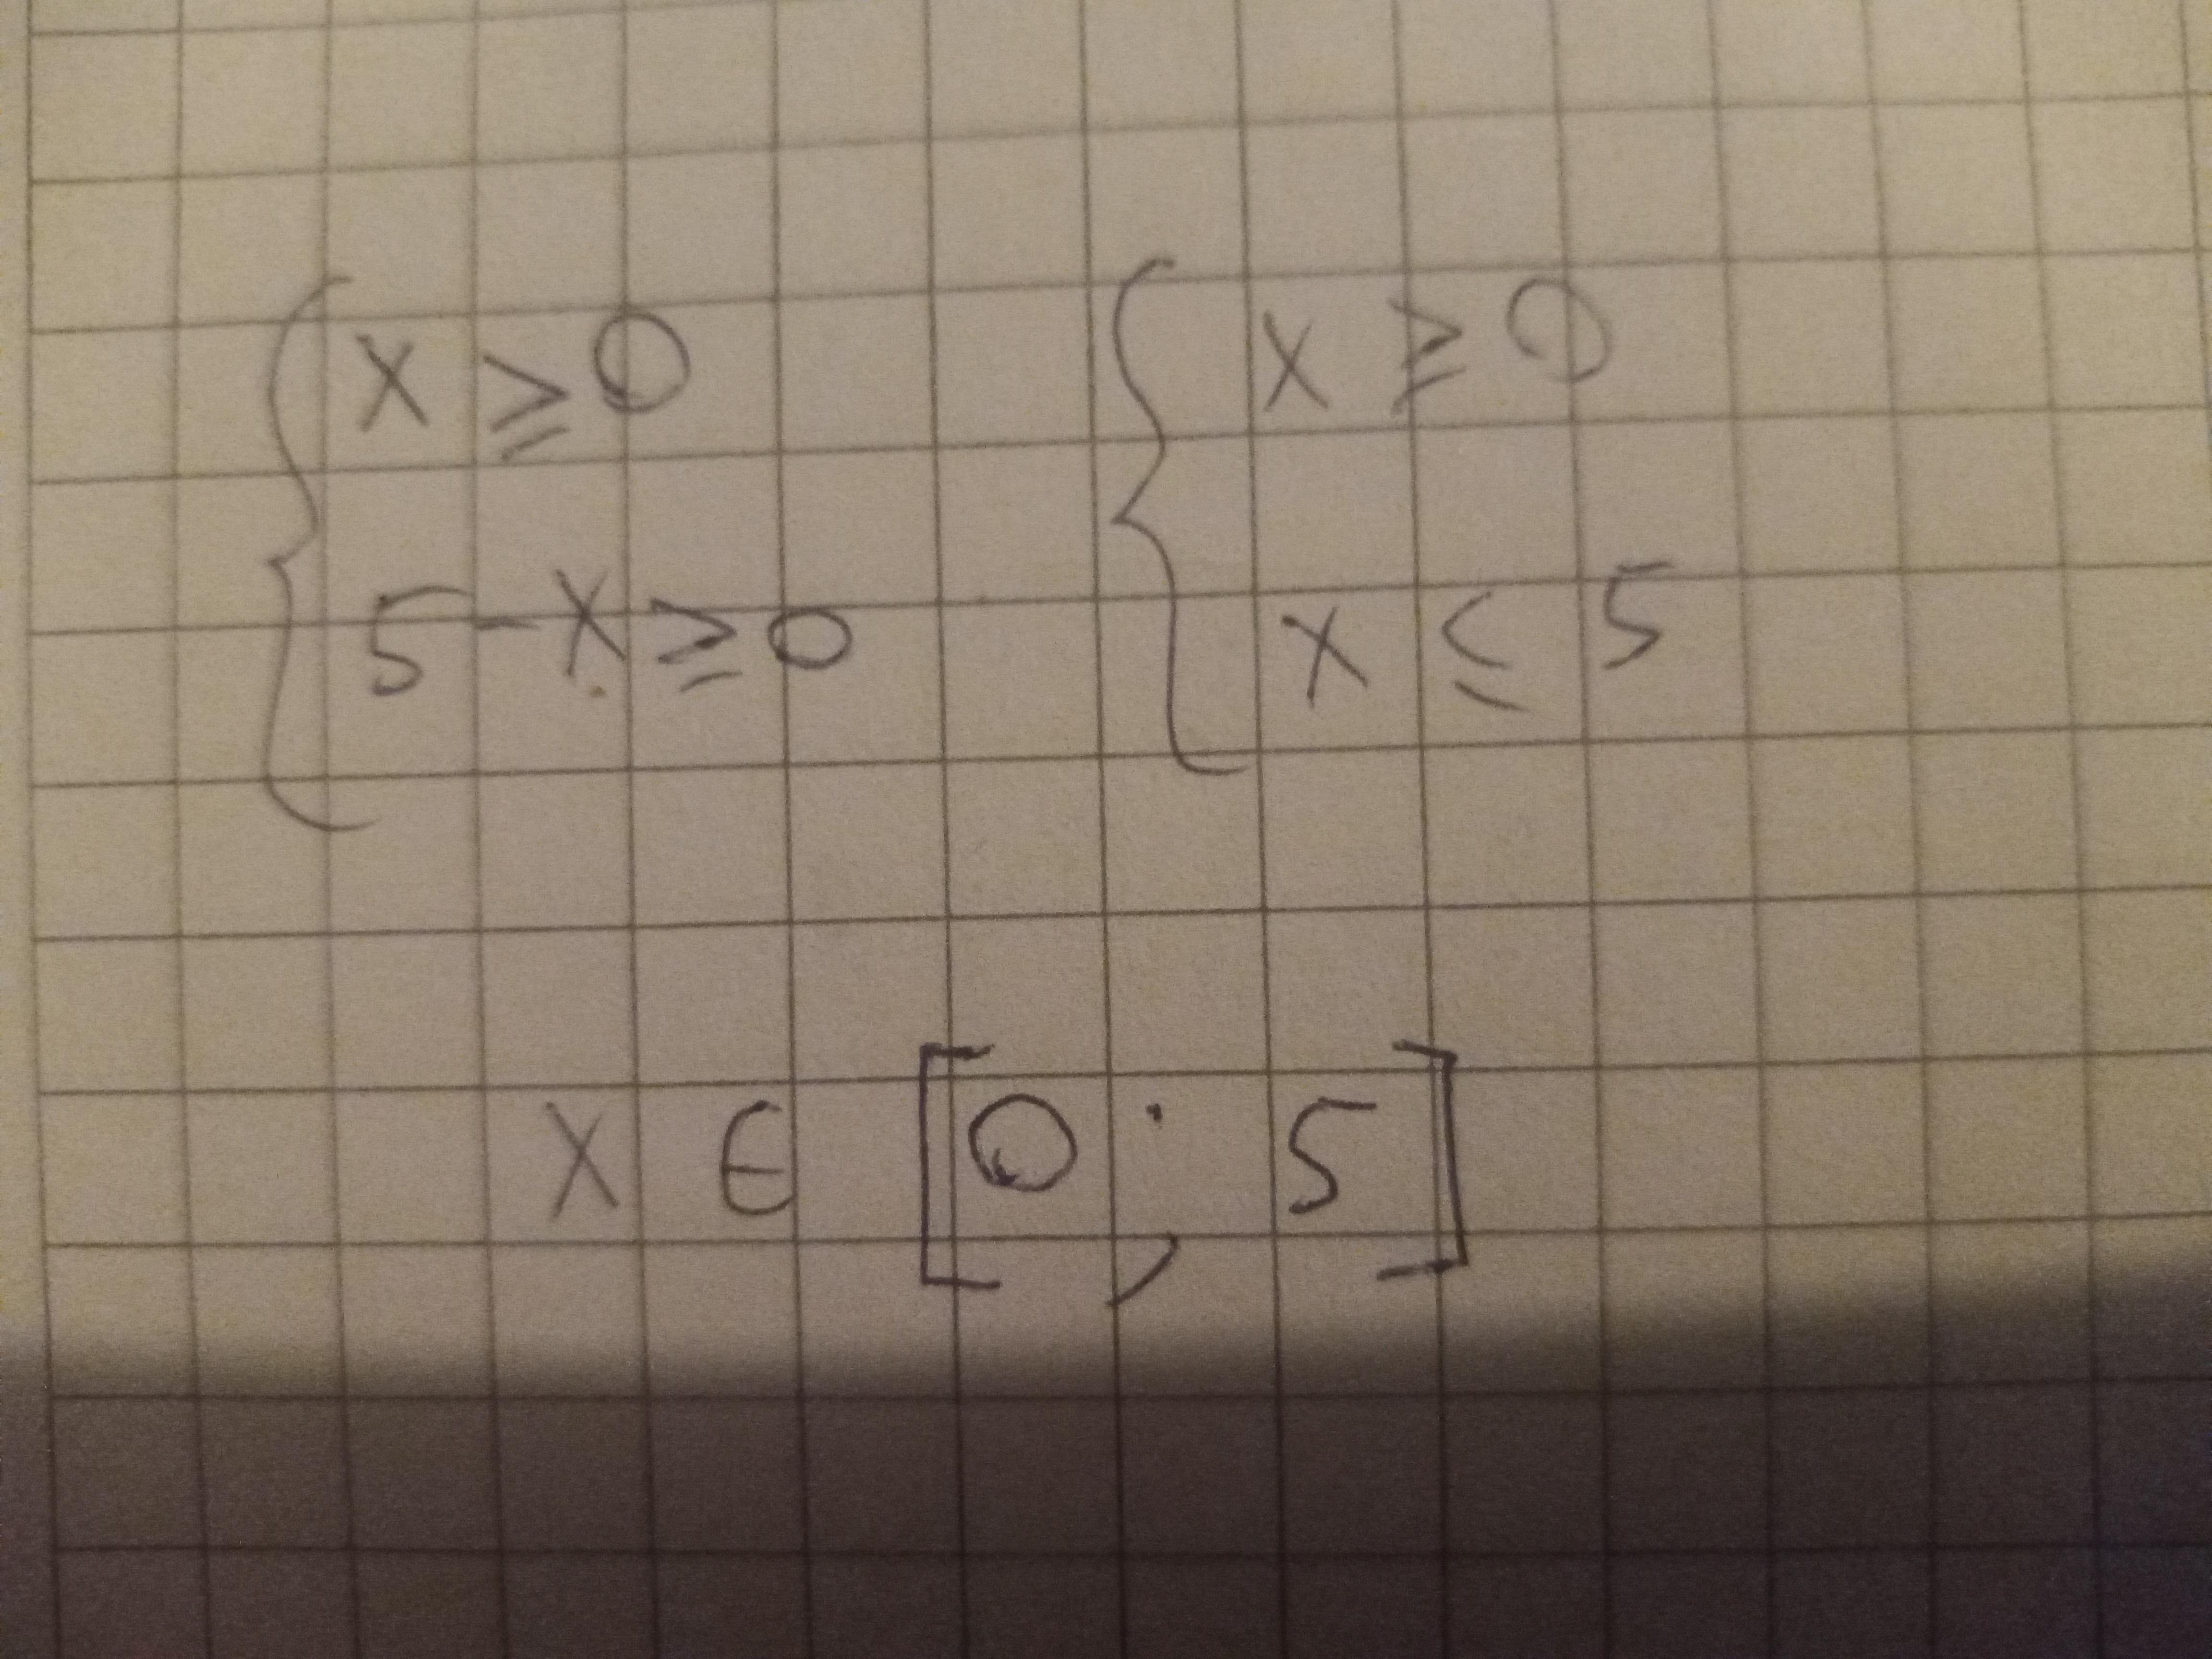 x ≥ 0
5 - x ≥ 0
x ≥ 0
x ≤ 5
x ∈ [0 ; 5]